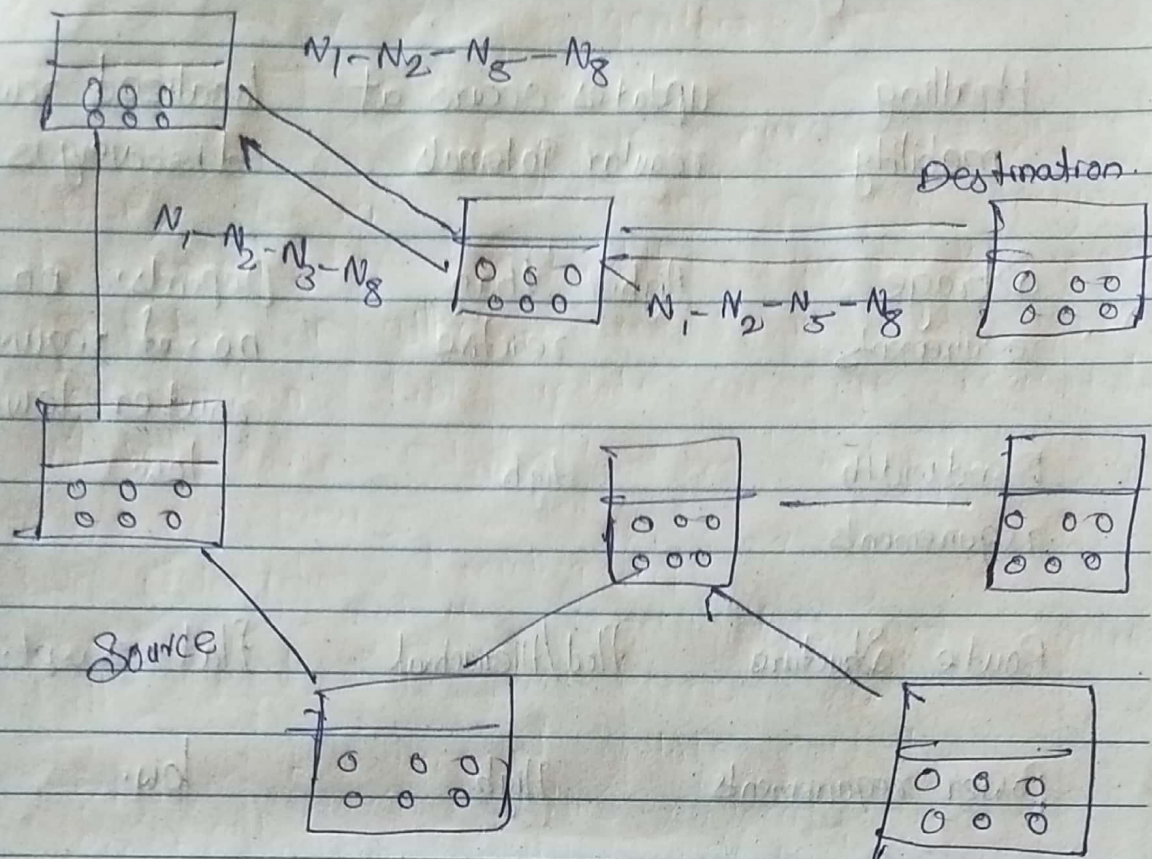 N1-N2-N5-N8
Destination.
N1-N2-N3-N8
N1-N2-N5-N8
Source